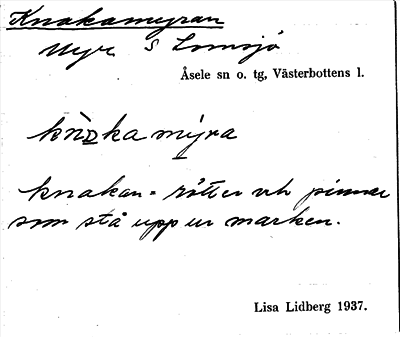 Knakamyran
Myr S Lomsjö
Åsele sn o. tg, Västerbottens l.
knakamyra
knakan = rötter och pinnar
som stå upp ur marken.
Lisa Lidberg 1937.